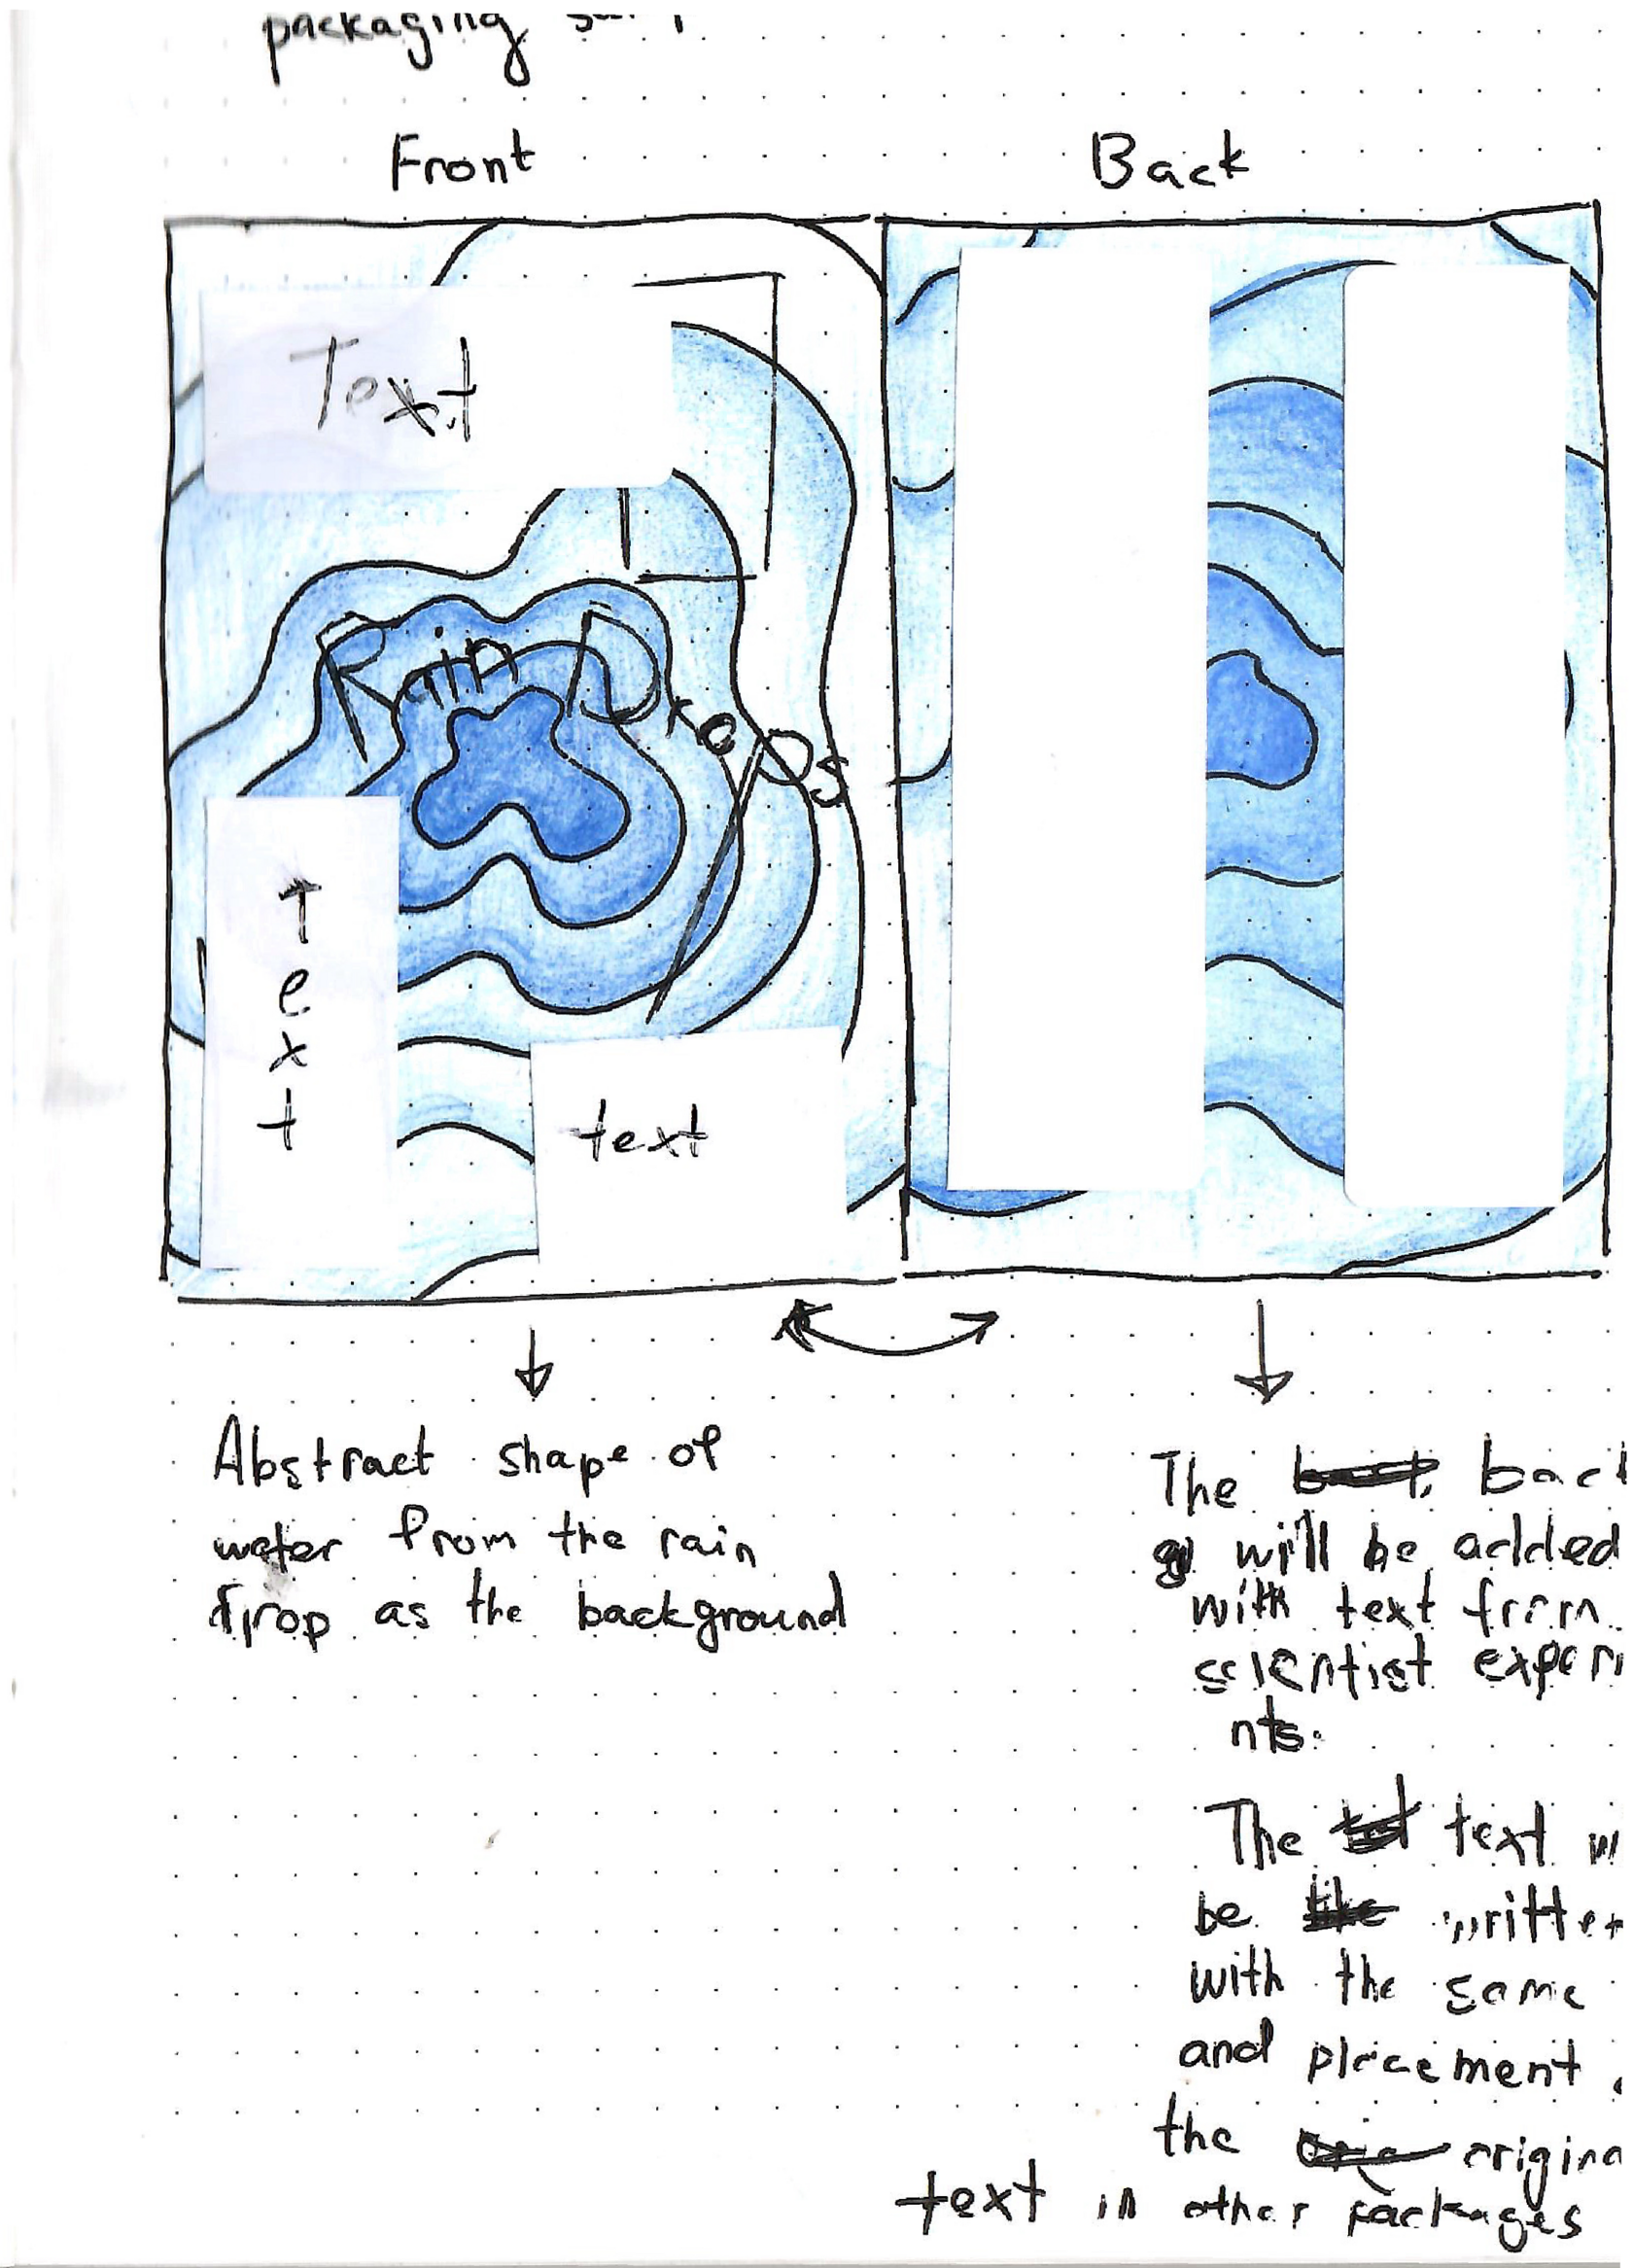 packaging
Front
Back
Text
Rain Drops
Text
text
Abstract shape of
water from the rain
drop as the background
The bac
will be added
with text from
scientist experi
nts.
The text w
be written
with the same
and placement
the origina
text in other packages